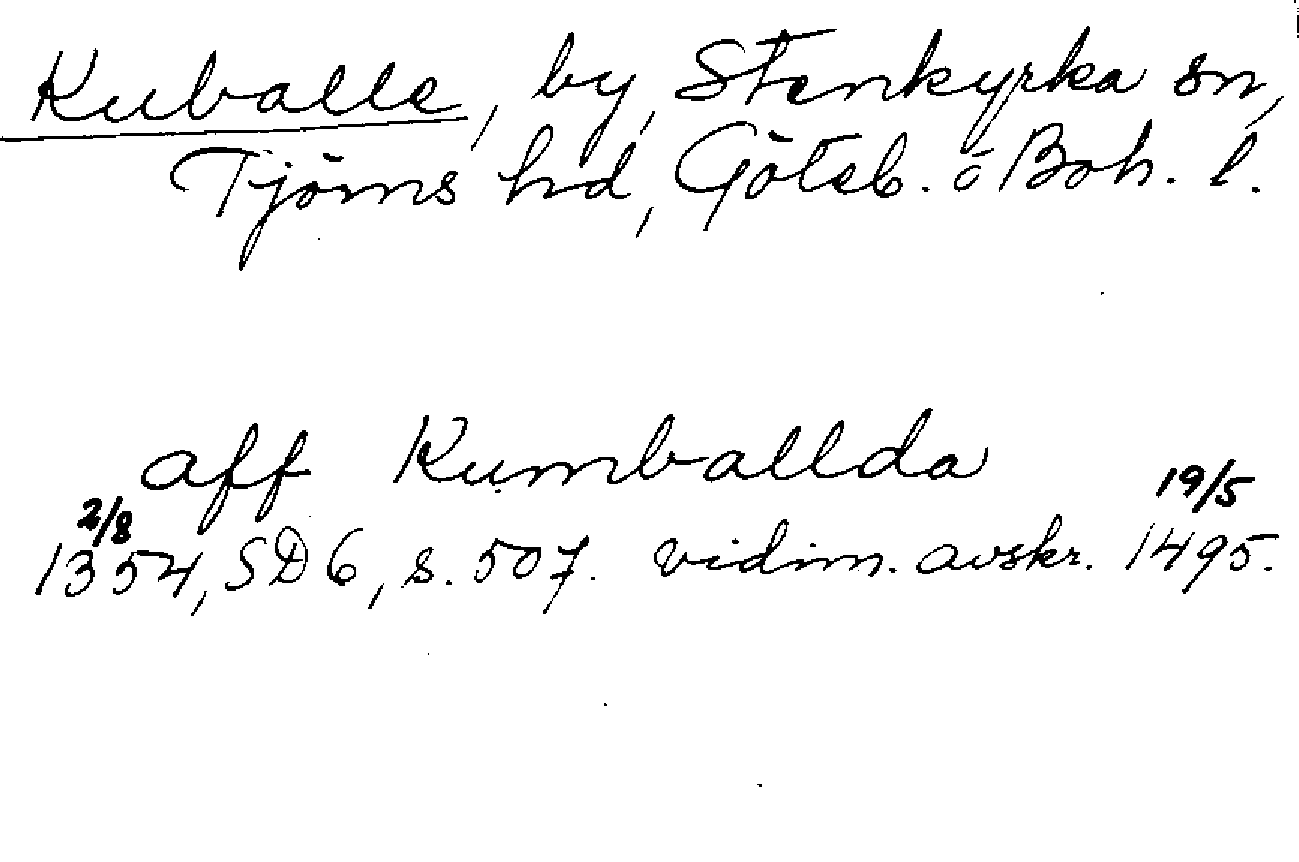 Kuballe, by, Stenkyrka sn,
Tjörns hd, Göteb. o Boh. l.
aff Kumballda
2/8 19/5
1354, SD6, s. 507. vidim. avskr. 1495.